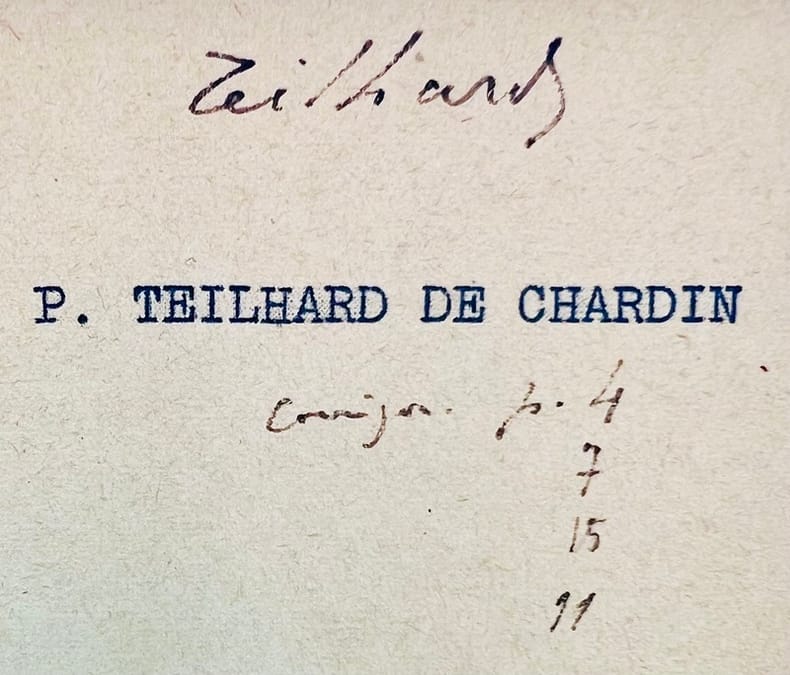 Teilhard
P. TEILHARD DE CHARDIN
p. 4
7
15
11